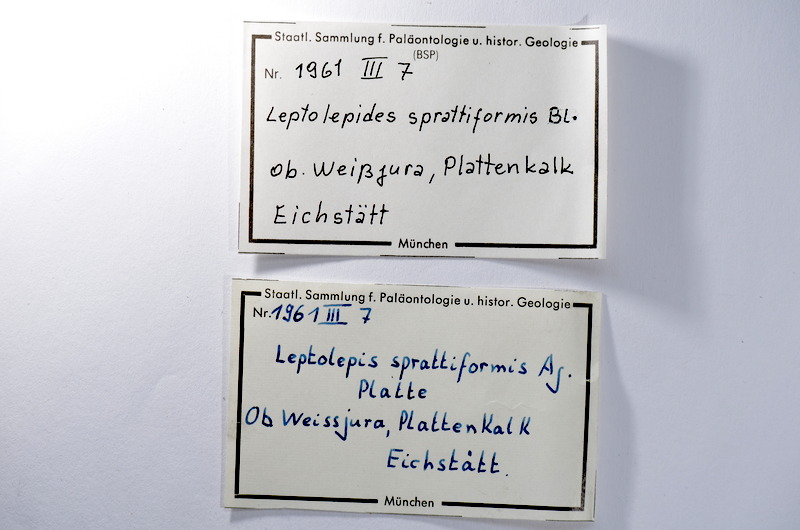 Staatl. Sammlung f. Paläontologie u. histor. Geologie
(BSP)
Nr. 1961 III 7
Leptolepides sprattiformis Bl.
Ob. Weißjura, Plattenkalk
Eichstätt
München
Staatl. Sammlung f. Paläontologie u. histor. Geologie
Nr. 1961 III 7
Leptolepis sprattiformis Ag.
Platte
Ob Weissjura, Plattenkalk
Eichstätt.
München